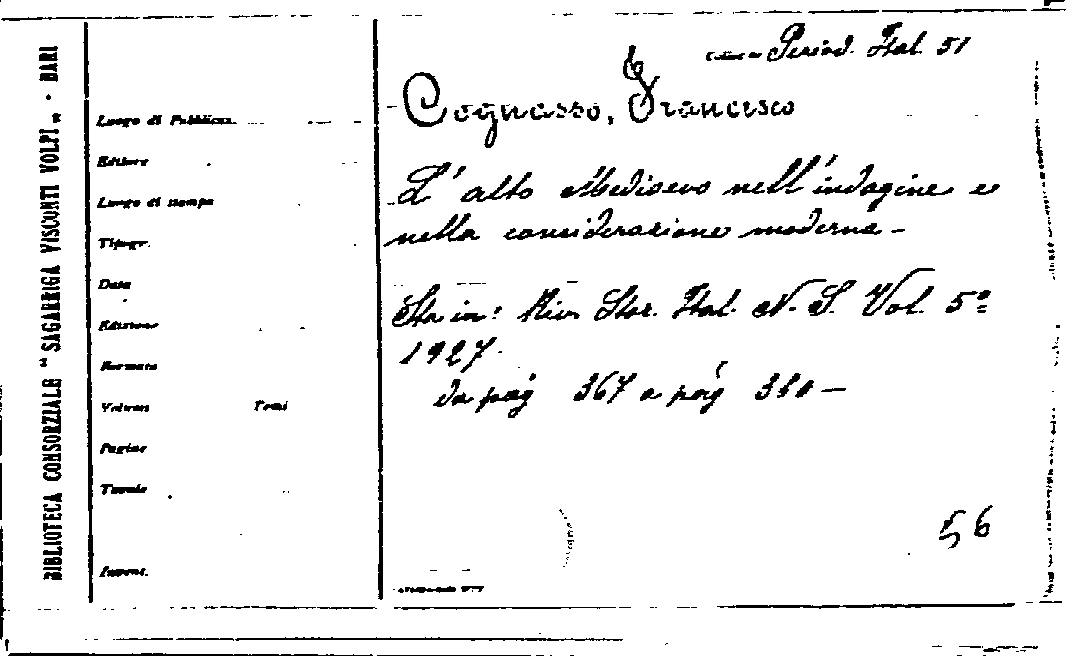 BIBLIOTECA CONSORZIALE " SAGARRIGA VISCONTI VOLPI „ - BARI
Luogo di Pubblicaz.
Editore
Luogo di stampa
Tipogr.
Data
Edizione
Formato
Volumi Tomi
Pagine
Tavole
Invent.
Period. Ital. 51
Cognasso, Francesco
L'alto Medioevo nell'indagine e
nella considerazione moderna -
Sta in: Riv. Stor. Ital. N. S. Vol. 5º
1927.
da pag 367 a pag
56